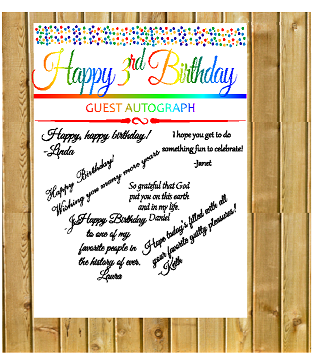 Happy 3rd Birthday
GUEST AUTOGRAPH
Happy, happy birthday!
-Linda
I hope you get to do
something fun to celebrate!
-Janet
Happy Birthday!
Wishing you many more years
So grateful that God
put you on this earth
and in my life.
Daniel
Happy Birthday
to one of my
favorite people in
the history of ever.
Laura
Hope today's filled with all
your favorite guilty pleasures!
-Keith